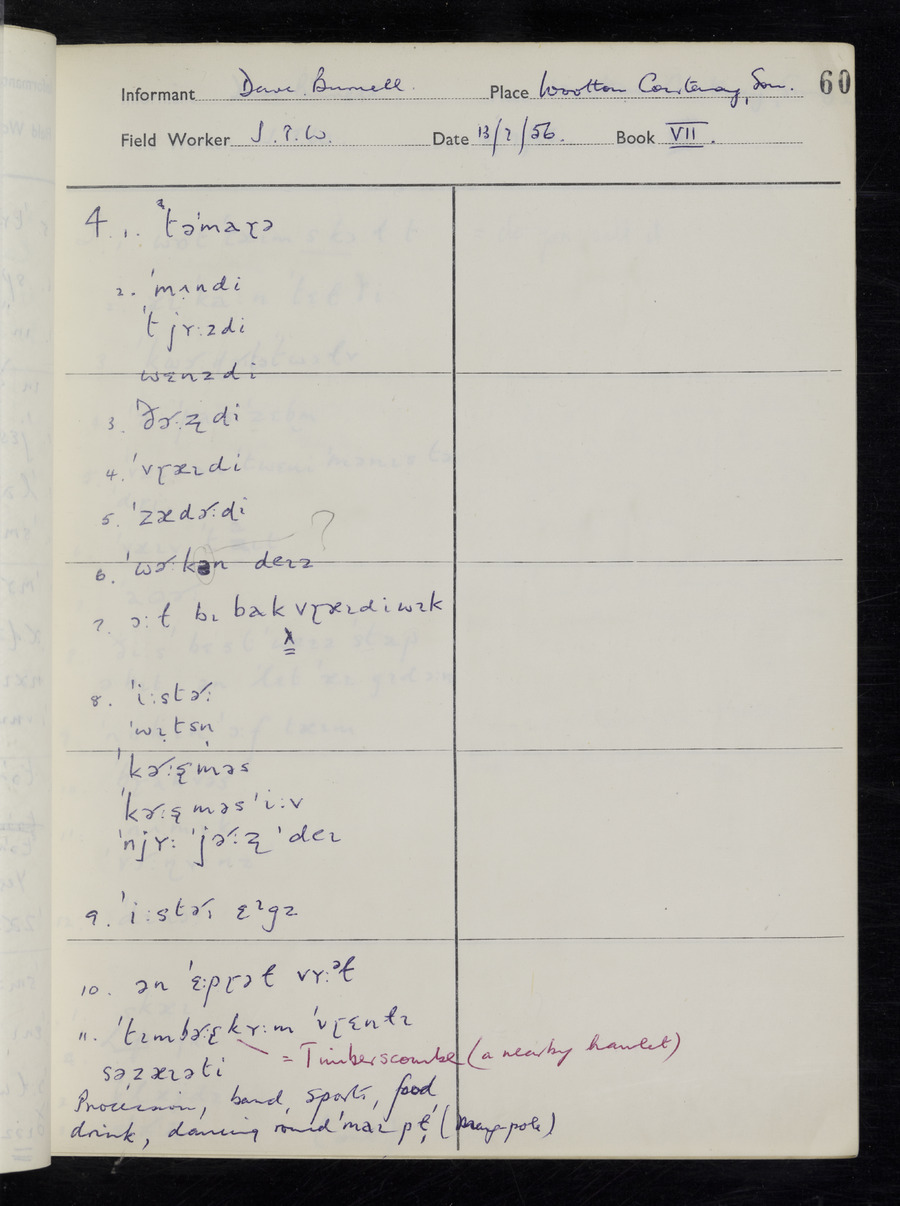 Informant Dave Burnell. Place Wootton Courtenay, Som. 60
Field Worker J.T.W. Date 13/7/56. Book VII.
4. 1. təˈmaɽə
2. ˈmʌndi
ˈtjʏ:zdi
wɛnzdi
3. ˈðəʴ:ʐdi
4. ˈvɽæɪdi
5. ˈzædəʴ:di
6. ˈwəʴkən deɪz ?
7. ɔ:ɫ bɪ bak vɽæɪdi wɪk
8. ˈi:stəʴ:
ˈwɪtsn̩
ˈkəʴ:ʂməs
ˈkəʴ:ʂməsˈi:v
ˈnjʏ: ˈjəʴ:ʐ ˈdeɪ
9. ˈi:stəʴ: ɛᶦgz
10. ən ˈɛ:pɽəɫ vʏ:ᵊɫ
11. ˈtɪmbəʴ:ʂkʏ:m ˈvɽɛnɫɪ
= Timberscombe (a nearby hamlet)
səzæɪəti
Procession, band, sports, food
drink, dancing round ˈmaɪpɫ̩ (Maypole)